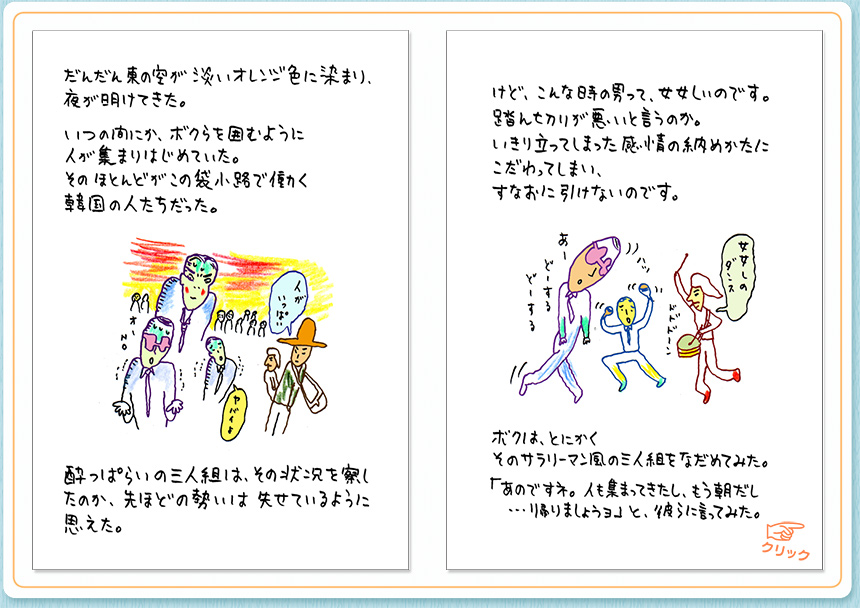 だんだん東の空が淡いオレンジ色に染まり、
夜が明けてきた。
いつの間にか、ボクらを囲むように
人が集まりはじめていた。
そのほとんどがこの袋小路で働く
韓国の人たちだった。
人が
いっぱい
オー
NO
ヤバイよ
酔っぱらいの三人組は、その状況を察し
たのか、先ほどの勢いは失せているように
思えた。
けど、こんな時の男って、女女しいのです。
踏んぎりが悪いと言うのか。
いきり立ってしまった感情の納めかたに
こだわってしまい、
すなおに引けないのです。
あー
どーする
どーする
ハッ
女女しの
ダンス
ドドドーン
ボクは、とにかく
そのサラリーマン風の三人組をなだめてみた。
「あのですネ。人も集まってきたし、もう朝だし
…帰りましょうョ」と、彼らに言ってみた。
クリック